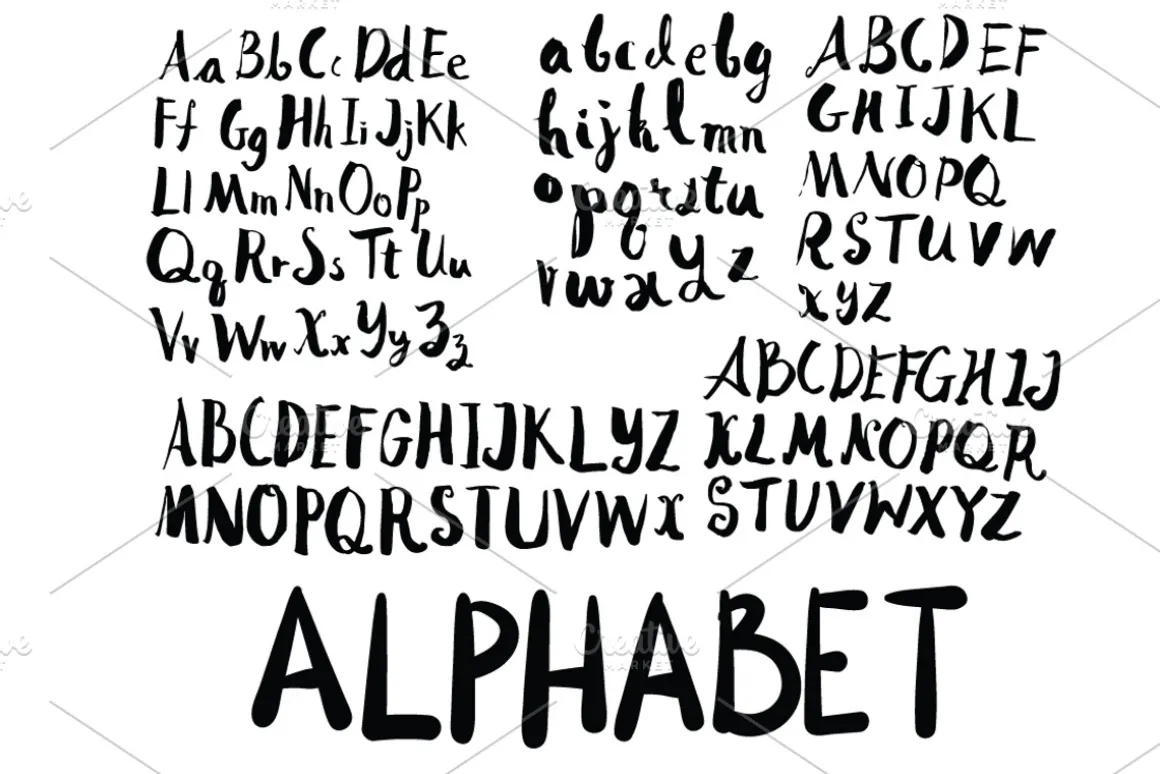 Aa Bb Cc Dd Ee
Ff Gg Hh Ii Jj Kk
Ll Mm Nn Oo Pp
Qq Rr Ss Tt Uu
Vv Ww Xx Yy Zz
a b c d e b g
h i j k l m n
o p q r s t u
v w x y z
A B C D E F
G H I J K L
M N O P Q
R S T U V W
X Y Z
A B C D E F G H I J K L Y Z
M N O P Q R S T U V W X
A B C D E F G H I J
K L M N O P Q R
S T U V W X Y Z
ALPHABET
Creative
MARKET